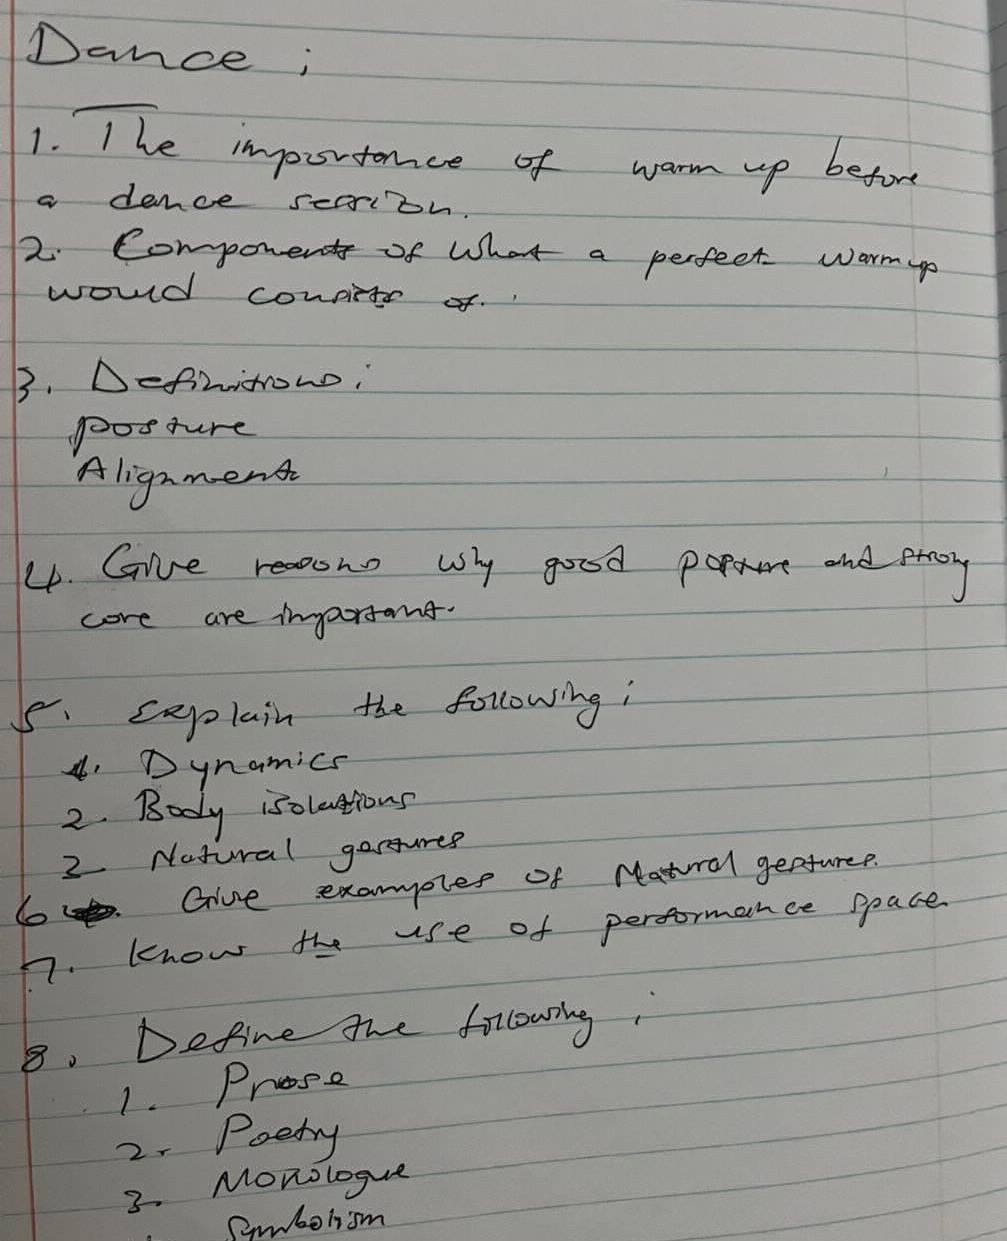 Dance ;
1. The importance of warm up before
a dance session.
2. Components of what a perfect warmup
would consists of.
3. Definitions :
posture
Alignment
4. Give reasons why good posture and strong
core are important.
5. Explain the following ;
1. Dynamics
2. Body isolations
3 Natural gestures
6 Give examples of Natural gestures.
7. Know the use of performance space.
8. Define the following ;
1. Prose
2. Poetry
3. Monologue
Symbolism